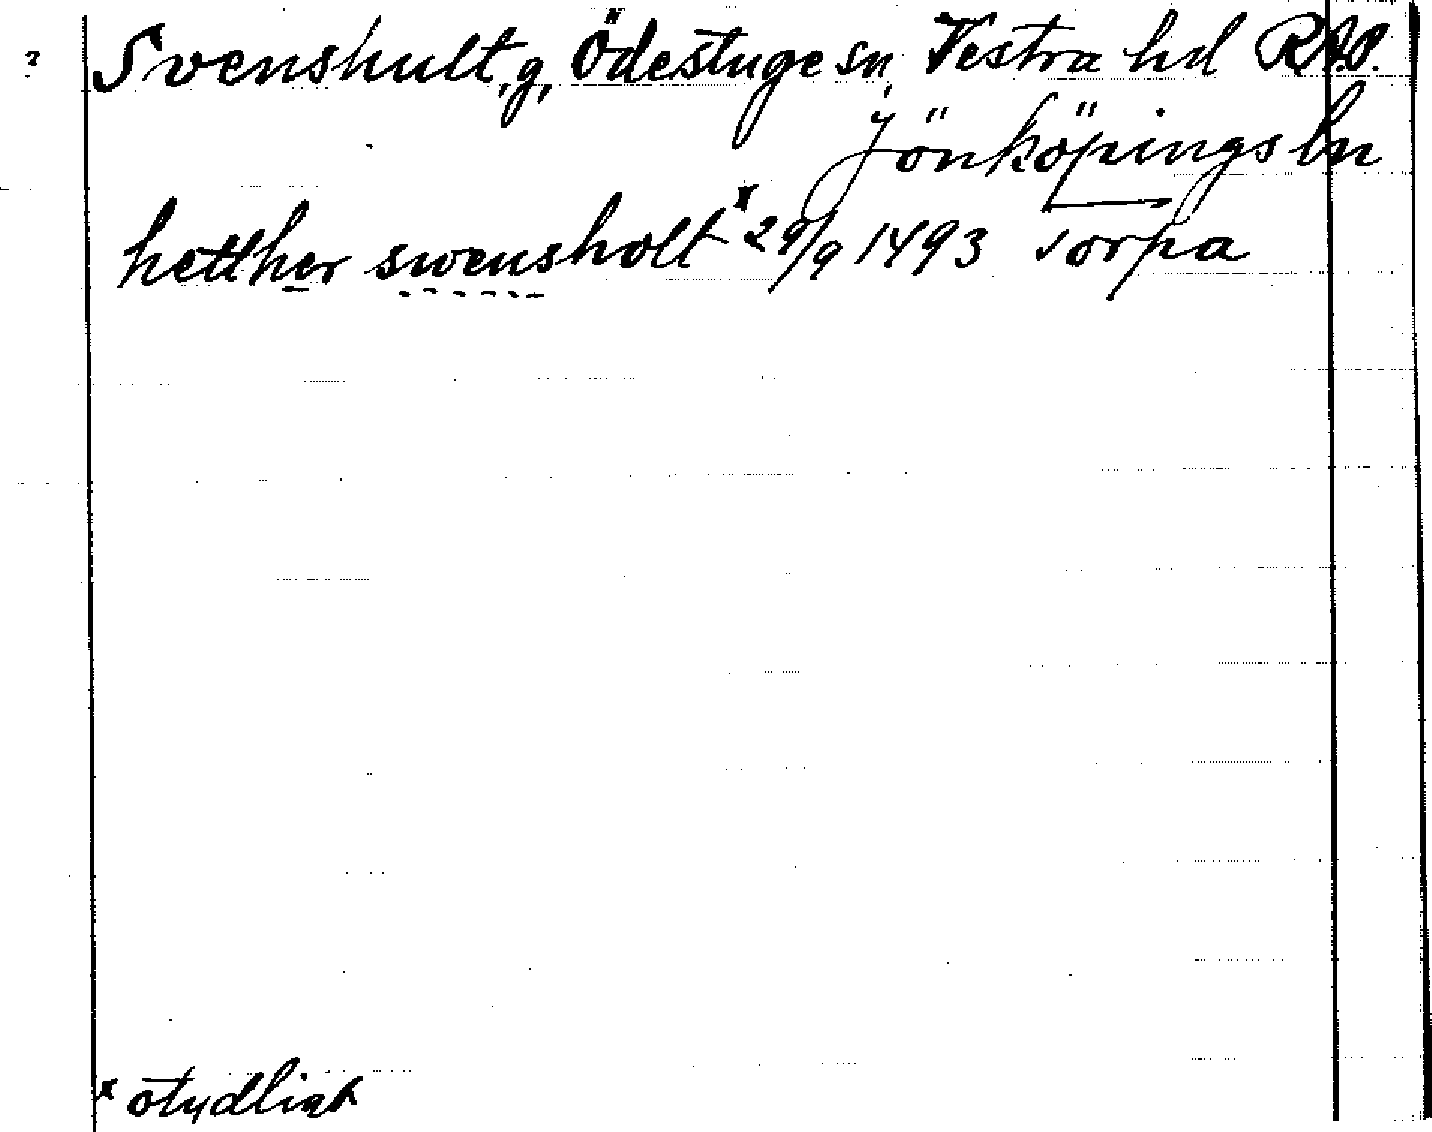 ? Svenshult, g, Ödestuge sn, Vestra hd R.A.P.
Jönköpings ln
hetther swensholt x 29/9 1493 Torpa
x otydligt